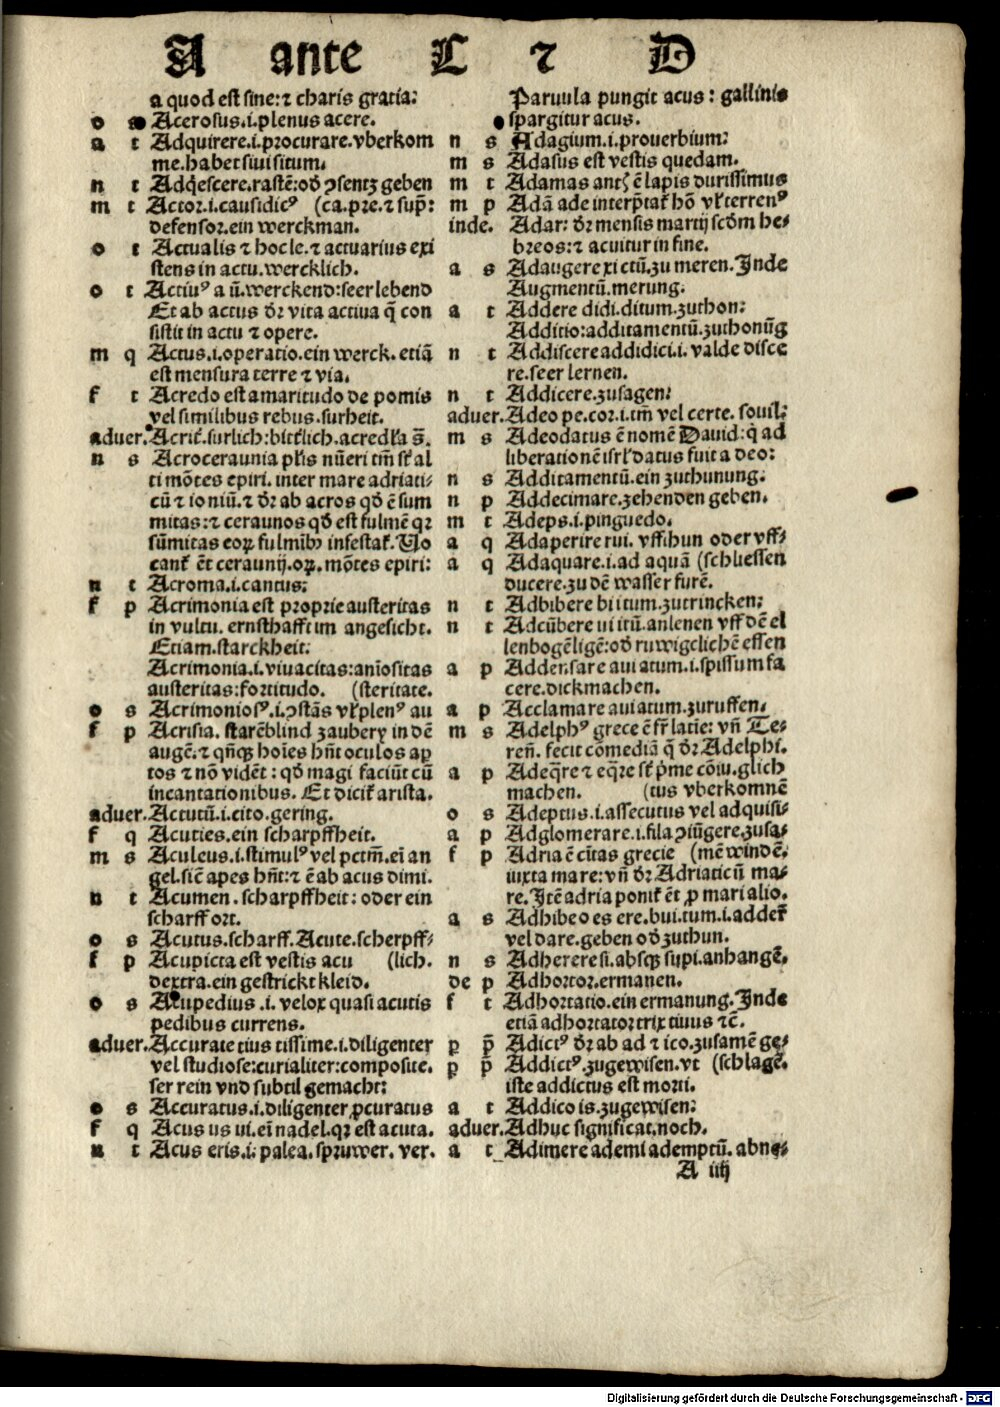 A ante C ⁊ D
a quod est sine:⁊ charis gratia:
o s Acerosus.i.plenus acere.
a t Adquirere.i.procurare.vberkom
me.habet sivi situm.
n t Adq̃escere.rastē:oď ꝯsentʒ geben
m t Actor.i.causidicꝰ (ca.pre.⁊ sup̄:
defensor.ein werckman.
o t Actualis ⁊ hoc le.⁊ actuarius exi
stens in actu.wercklich.
o t Actiuꝰ a ū.werckend:seer lebend
Et ab actus ďr vita actiua q̃ con
sistit in actu ⁊ opere.
m q Actus.i.operatio.ein werck.etiā
est mensura terre ⁊ via.
f t Acredo est amaritudo de pomis
vel similibus rebus.surheit.
aduer. Acrit̃.surlich:bittlich.acredĺa s̄.
n s Acroceraunia pĺis nūeri tm̄ st̄ al
ti mōtes epiri.inter mare adriati-
cū ⁊ ioniū.⁊ ďr ab acros qď ē sum
mitas:⁊ ceraunos qď est fulmē qꝛ
sūmitas eoꝝ fulmībꝰ infestat̃.Vo
cant̃ ēt ceraunij.oꝝ.mōtes epiri:
n t Acroma.i.cantus:
f p Acrimonia est proprie austeritas
in vultu. ernsthafft im angesicht.
Etiam.starckheit:
Acrimonia.i.viuacitas:aniōsitas
austeritas:fortitudo. (steritate.
o s Acrimoniosꝰ.i.ꝯstās vĺ plenꝰ au
f p Acrisia. starēblind zaubery in dē
augē.⁊ qn̄qꝫ hoīes hn̄t oculos ap
tos ⁊ nō vidēt: qď magi faciūt cū
incantationibus. Et dicit̃ arista.
aduer. Actutū.i.cito.gering.
f q Acuties.ein scharpffheit.
m s Aculeus.i.stimulꝰ vel pctm̄.eī an
gel.sic̄ apes hn̄t:⁊ ē ab acus dimi.
n t Acumen.scharpffheit:oder ein
scharff ort.
o s Acutus.scharff.Acute.scherpff-
f p Acupicta est vestis acu (lich.
dextra.ein gestrickt kleid.
o s Acupedius .i. velox quasi acutis
pedibus currens.
aduer. Accurate tius tissime.i.diligenter
vel studiose:curialiter:composite.
ser rein vnd subtil gemacht:
o s Accuratus.i.diligenter ꝓcuratus
f q Acus us ui.eī nadel.qꝛ est acuta.
n t Acus eris.i: palea.spruwer. ver.
Paruula pungit acus: gallinis
spargitur acus.
n s Adagium.i.prouerbium:
m s Adasus est vestis quedam.
m t Adamas antꝭ ē lapis durissimus
m p Adā ade interp̄tat̃ hō vĺ terrenꝰ
inde. Adar: ďr mensis martij scďm he-
breos:⁊ acuitur in fine.
a s Adaugere xi ctū.zu meren.Inde
Augmentū.merung.
a t Addere didi.ditum.zuthon:
Additio:additamentū.zuthonūg
n t Addiscere addidici.i. valde disce
re.seer lernen.
n t Addicere.zusagen:
aduer. Adeo pe.cor.i.tm̄ vel certe. souil:
m s Adeodatus ē nomē Dauid:q̃ ad
liberationē isrĺ datus fuit a deo:
n s Additamentū.ein zuthunung.
n p Addecimare.zehenden geben.
m t Adeps.i.pinguedo.
a q Adaperire rui. vff.thun oder vff-
a q Adaquare.i.ad aquā (schliessen
ducere.zu dē wasser furē.
n t Adbibere bi itum.zutrincken:
n t Adcūbere ui itū.anlenen vff dē el
lenbogē ligē:oď ruwigclichē essen
a p Addensare aui atum.i.spissum fa
cere.dick machen.
a p Acclamare aui atum.zuruffen.
m s Adelphꝰ grece ē fr̄ latie: vn̄ Te-
ren̄. fecit comediā q̃ ďr Adelphi.
a p Adeq̃re ⁊ eq̃re st̄ p̄me cōiu.glich
machen. (tus vberkomnē
o s Adeptus.i.assecutus vel adquisi-
a p Adglomerare.i.fila ꝯiūgere.zusa-
f p Adria ē cītas grecie (mē windē.
iuxta mare: vn̄ ďr Adriaticū ma-
re.Itē adria ponit̃ ēt ꝓ mari alio.
a s Adhibeo es ere.bui.tum.i.adder̃
vel dare.geben oď zuthun.
n s Adherere si.absqꝫ supi.anhangē.
de p Adhortor.ermanen.
f t Adhortatio.ein ermanung.Inde
etiā adhortator trix tiuus ⁊c̄.
p p̄ Adictꝰ ďr ab ad ⁊ ico.zusamē ge-
p p̄ Addictꝰ.zugewisen.vt (schlagē.
iste addictus est morti.
a t Addico is.zugewisen:
aduer. Adhuc significat.noch.
a t Adimere ademi ademptū. abne-
A iiij
Digitalisierung gefördert durch die Deutsche Forschungsgemeinschaft - DFG